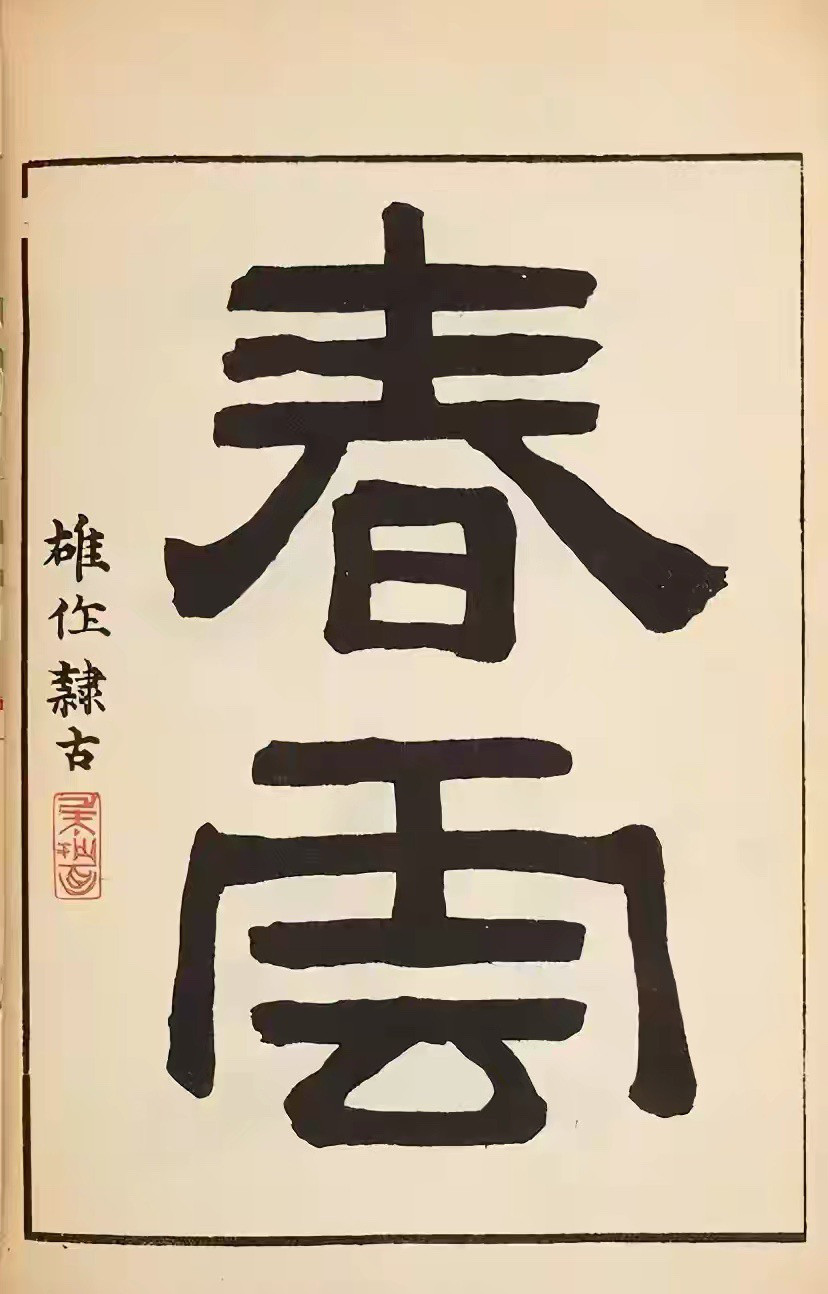 春雲
雄作隸古